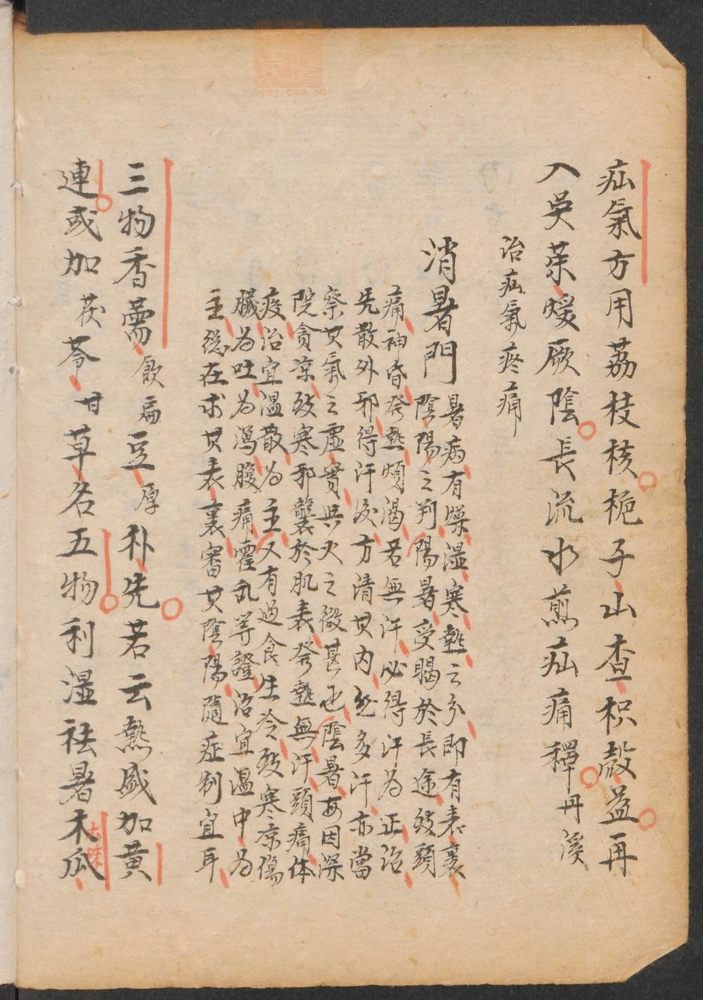 疝氣方用荔枝核梔子山查枳殼益再
入吳茱煖厥陰長流水煎疝痛釋丹溪
治疝氣疼痛
消暑門
暑病有燥湿寒熱之分即有表裏
陰陽之判陽暑受暍於長途致頭
痛神昏發熱煩渴若無汗必得汗為正治
先散外邪得汗後方清其內熱多汗亦當
察其氣之虛實與火之微甚也陰暑每因深
院貪凉致寒邪襲於肌表發熱無汗頭痛体
疫治宜温散為主又有過食生冷致寒凉傷
臟為吐為瀉腹痛霍乱等證治宜温中為
主總在求其表裏審其陰陽隨症制宜耳
三物香薷飲扁豆厚朴先若云熱盛加黄
連或加茯苓甘草名五物利湿祛暑木瓜